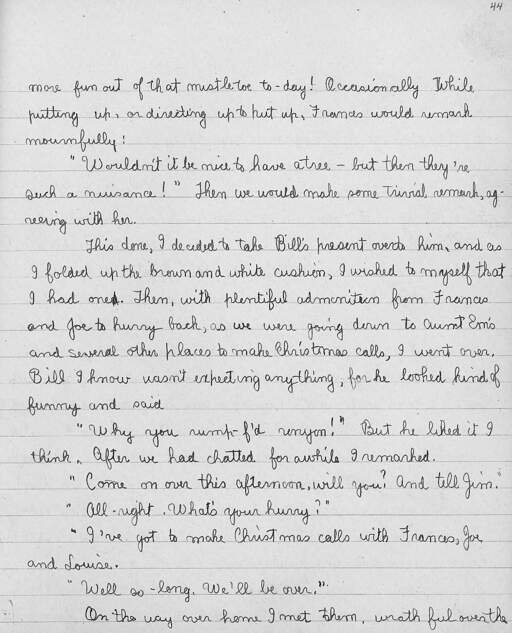 44
more fun out of that mistletoe to-day! Occasionally while
putting up, or directing up to put up, Frances would remark
mournfully:
"Wouldn't it be nice to have a tree – but then they're
such a nuisance!" Then we would make some trivial remark, ag-
reeing with her.
This done, I decided to take Bill's present over to him, and as
I folded up the brown and white cushion, I wished to myself that
I had one. Then, with plentiful admonition from Frances
and Joe to hurry back, as we were going down to Aunt Em's
and several other places to make Christmas calls, I went over.
Bill I know wasn't expecting anything, for he looked kind of
funny and said
"Why you rump-f'd runyon!" But he liked it I
think. After we had chatted for awhile I remarked.
"Come on over this afternoon, will you? And tell Jim."
"All-right. What's your hurry?"
"I've got to make Christmas calls with Frances, Joe,
and Louise.
"Well so-long. We'll be over."
On the way over home I met them, wrathful over the